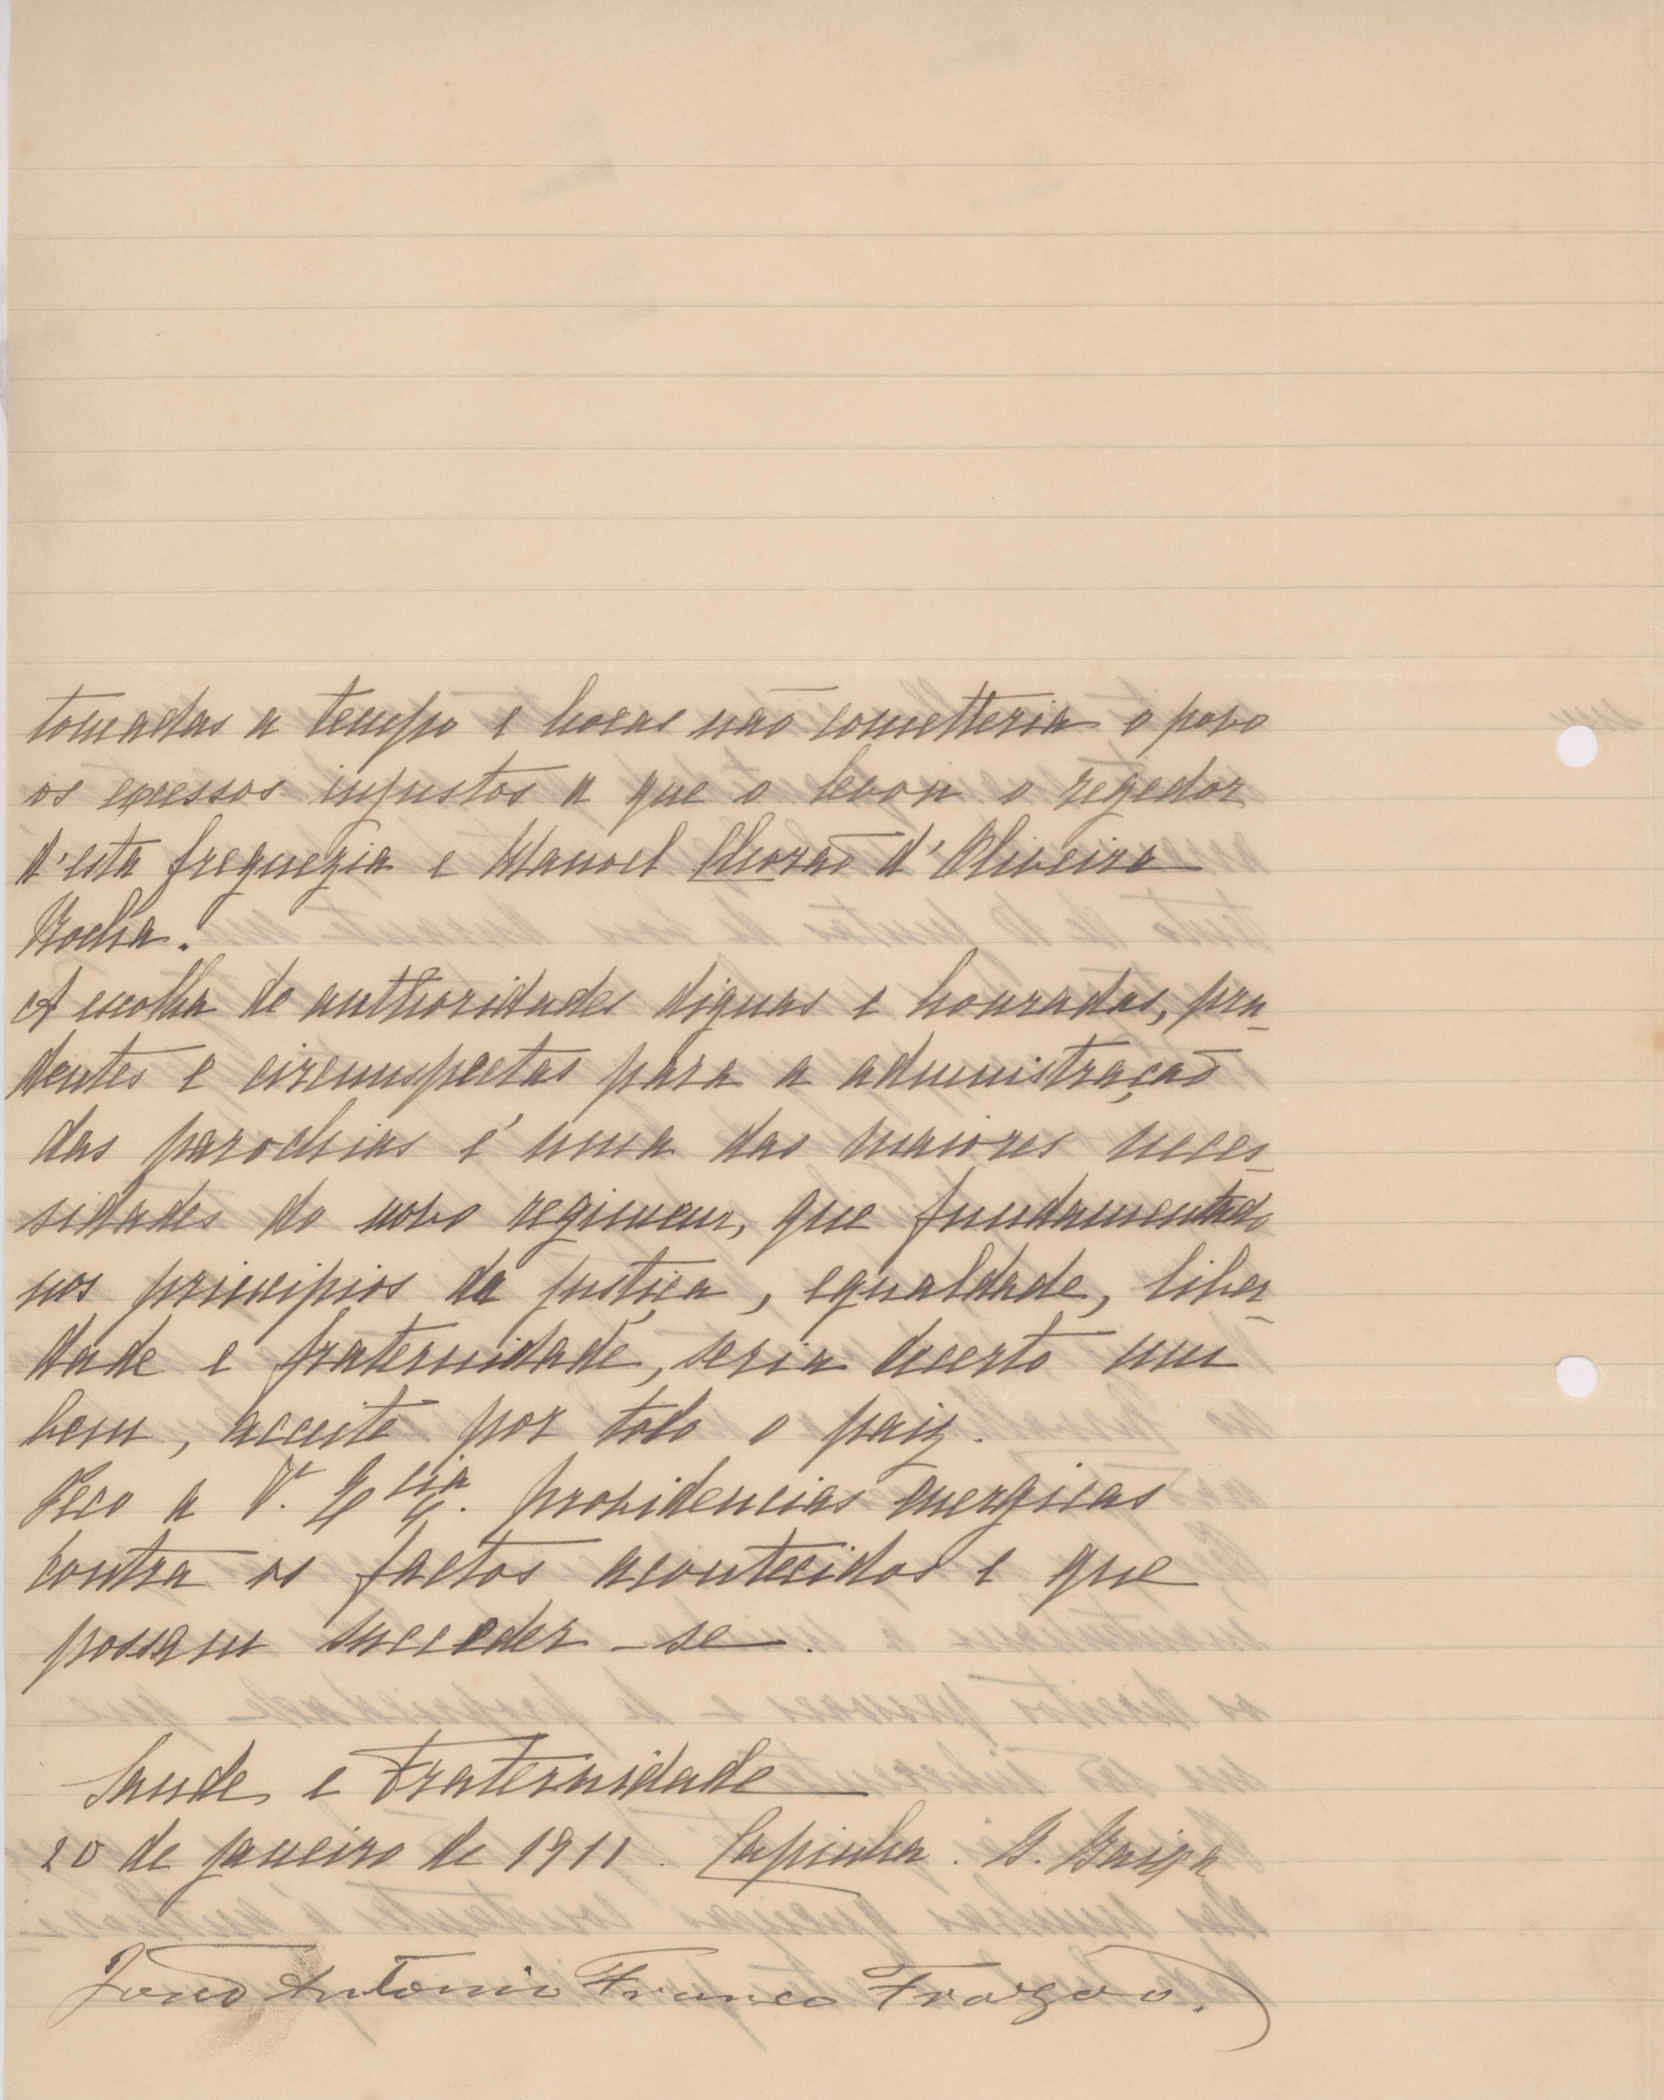 tomadas a tempo e horas não cometteria o povo
os excessos injustos a que o levou o regedor
d'esta freguezia e Manoel Chorão d'Oliveira
Rocha.
A escolha de authoridades dignas e honradas, pru-
dentes e circumspectas para a administração
das parochias é uma das maiores neces-
sidades do novo regimem, que fundamentado
nos principios da justiça, egualdade, liber-
dade e fraternidade, seria decerto um
bem, acceite por todo o paiz.
Peço a V. Ex.cia providencias energicas
contra os factos acontecidos e que
possam succeder-se.
Saude e Fraternidade
20 de janeiro de 1911. Capinha.
João Antonio Franco Frazão.